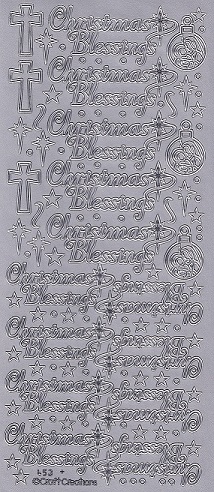 Christmas
Blessings
Christmas
Blessings
Christmas
Blessings
Christmas
Blessings
Christmas
Blessings
Christmas
Blessings
Christmas
Blessings
Christmas
Blessings
Christmas
Blessings
Christmas
Blessings
Christmas
Blessings
Christmas
Blessings
Christmas
Blessings
©Craft Creations